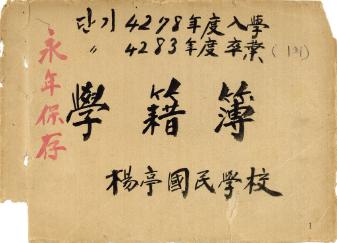 단기 4278年度入學
〃 4283年度卒業 (1回)
永年保存
學籍簿
楊亭國民學校
1